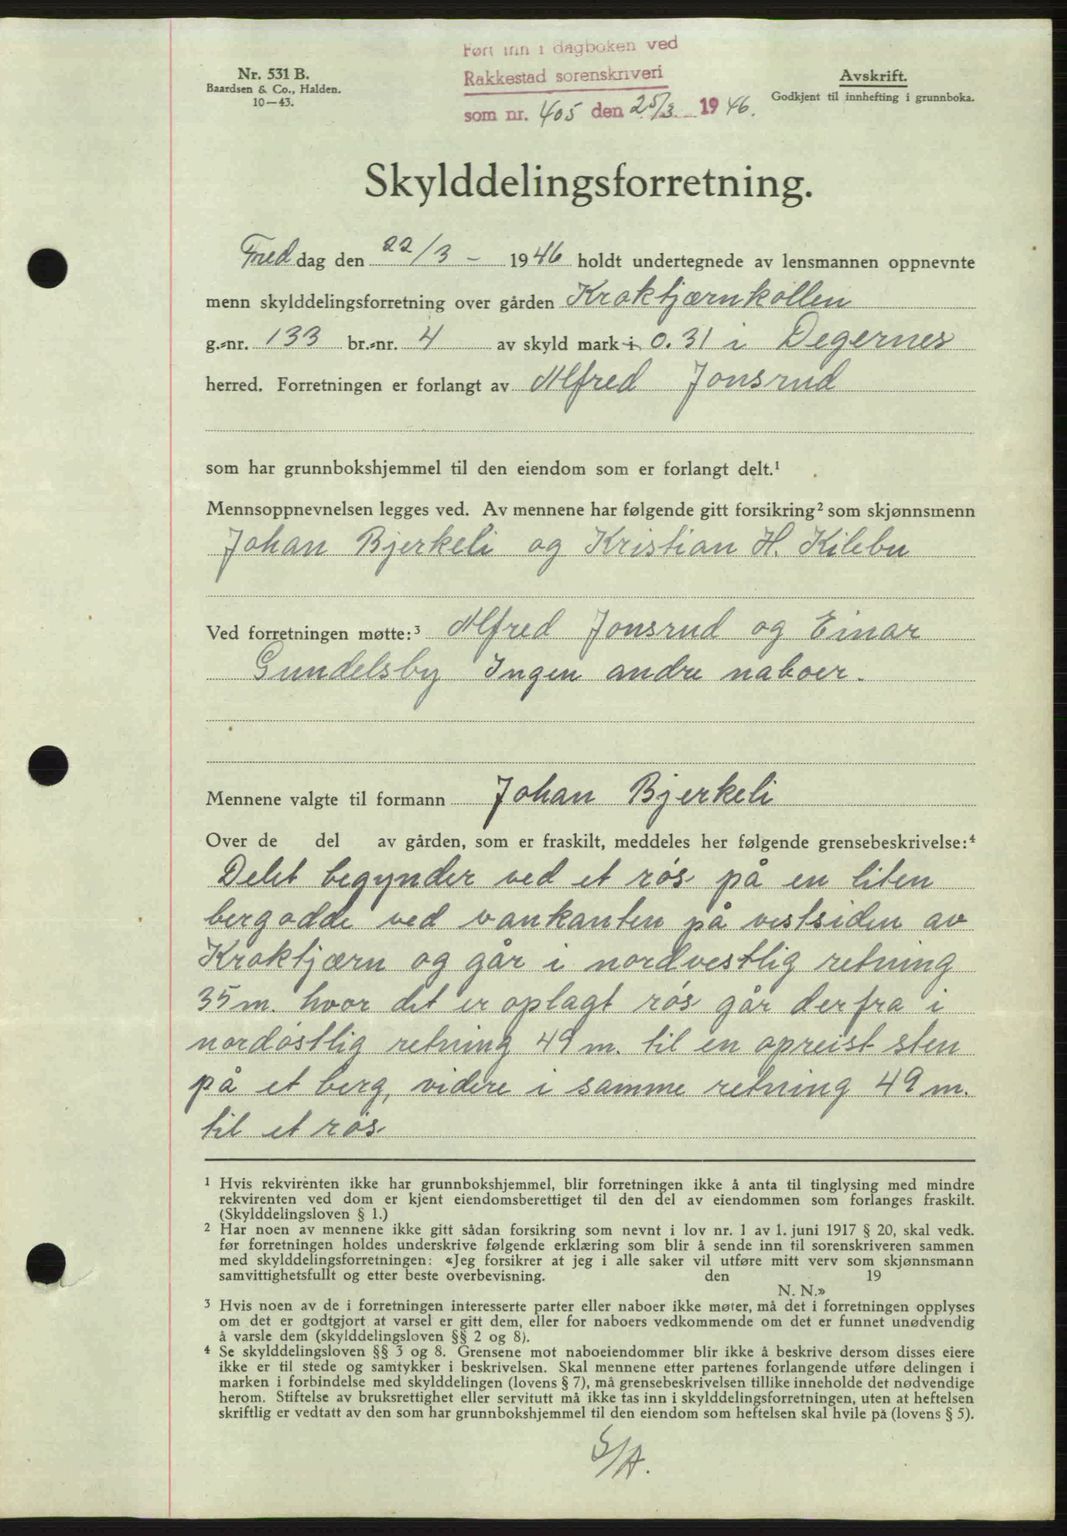 Nr. 531 B.
Baardsen & Co., Halden.
10—43.
Ført inn i dagboken ved
Rakkestad sorenskriveri
som nr. 405 den 25/3 1946.
Avskrift.
Godkjent til innhefting i grunnboka.
Skylddelingsforretning.
Freddag den 22/3 - 1946 holdt undertegnede av lensmannen oppnevnte
menn skylddelingsforretning over gården Kroktjærnkollen
g.-nr. 133 br.-nr. 4 av skyld mark i 0.31 i Degernes
herred. Forretningen er forlangt av Alfred Jonsrud
som har grunnbokshjemmel til den eiendom som er forlangt delt.¹
Mennsoppnevnelsen legges ved. Av mennene har følgende gitt forsikring² som skjønnsmenn
Johan Bjerkeli og Kristian H. Kilebu
Ved forretningen møtte:³ Alfred Jonsrud og Einar
Gundelsby Ingen andre naboer.
Mennene valgte til formann Johan Bjerkeli
Over de del av gården, som er fraskilt, meddeles her følgende grensebeskrivelse:⁴
Delet begynder ved et røs på en liten
bergodde ved vankanten på vestsiden av
Kroktjærn og går i nordvestlig retning
35 m. hvor det er oplagt røs går derfra i
nordøstlig retning 49 m. til en opreist sten
på et berg, videre i samme retning 49 m.
til et røs.
¹ Hvis rekvirenten ikke har grunnbokshjemmel, blir forretningen ikke å anta til tinglysing med mindre
rekvirenten ved dom er kjent eiendomsberettiget til den del av eiendommen som forlanges fraskilt.
(Skylddelingsloven § 1.)
² Har noen av mennene ikke gitt sådan forsikring som nevnt i lov nr. 1 av 1. juni 1917 § 20, skal vedk.
før forretningen holdes underskrive følgende erklæring som blir å sende inn til sorenskriveren sammen
med skylddelingsforretningen: «Jeg forsikrer at jeg i alle saker vil utføre mitt verv som skjønnsmann
samvittighetsfullt og etter beste overbevisning. den 19
N. N.»
³ Hvis noen av de i forretningen interesserte parter eller naboer ikke møter, må det i forretningen opplyses
om det er godtgjort at varsel er gitt dem, eller for naboers vedkommende om det er funnet unødvendig
å varsle dem (skylddelingsloven §§ 2 og 8).
⁴ Se skylddelingsloven §§ 3 og 8. Grensene mot naboeiendommer blir ikke å beskrive dersom disses eiere
ikke er til stede og samtykker i beskrivelsen. Skal mennene etter partenes forlangende utføre delingen i
marken i forbindelse med skylddelingen (lovens § 7), må grensebeskrivelsen tillike inneholde det nødvendige
herom. Stiftelse av bruksrettighet eller servitutt må ikke tas inn i skylddelingsforretningen, uten at heftelsen
skriftlig er vedtatt av den som har grunnbokshjemmel til den eiendom som heftelsen skal hvile på (lovens § 5).
S/A.